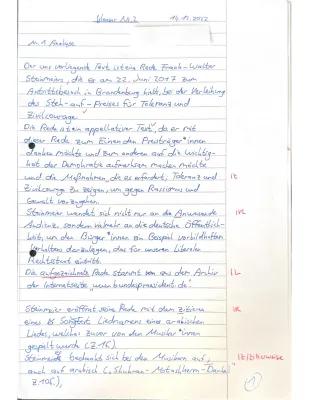 Klausur Nr. 2 14.11.2022
M 1 Analyse
Der uns vorliegende Text ist ein Rede Frank-Walter
Steinmeiers, die er am 22. Juni 2017 zum
Antrittsbesuch in Brandenburg hielt, bei der Verleihung
des Steh-auf-Preises für Toleranz und
Zivilcourage.
Die Rede ist ein appellativer Text, da er mit
dieser Rede zum Einen den Preisträger*innen
danken möchte und zum anderen auf die Wichtig-
keit der Demokratie aufmerksam machen möchte
und die Maßnahmen, die es erfordert, Toleranz und
Zivilcourage zu zeigen, um gegen Rassismus und
Gewalt vorzugehen.
Steinmeier wendet sich nicht nur an die Anwesende
Audienz, sondern vielmehr an die deutsche Öffentlich-
keit, um den Bürger*innen ein Beispiel vorbildhaften
Verhaltens darzulegen, das für unseren liberalen
Rechtsstaat eintritt.
Die aufgezeichnete Rede stammt von aus dem Archiv
der Internetseite „www.bundespraesident.de“.
Steinmeier eröffnet seine Rede mit dem Zitieren
eines Liednamens eines arabischen
Liedes, welches zuvor von den Musiker*innen
gespielt wurde (Z.1f.).
Steinmeier bedankt sich bei den Musikern auf,
auch auf arabisch („Shukran
1